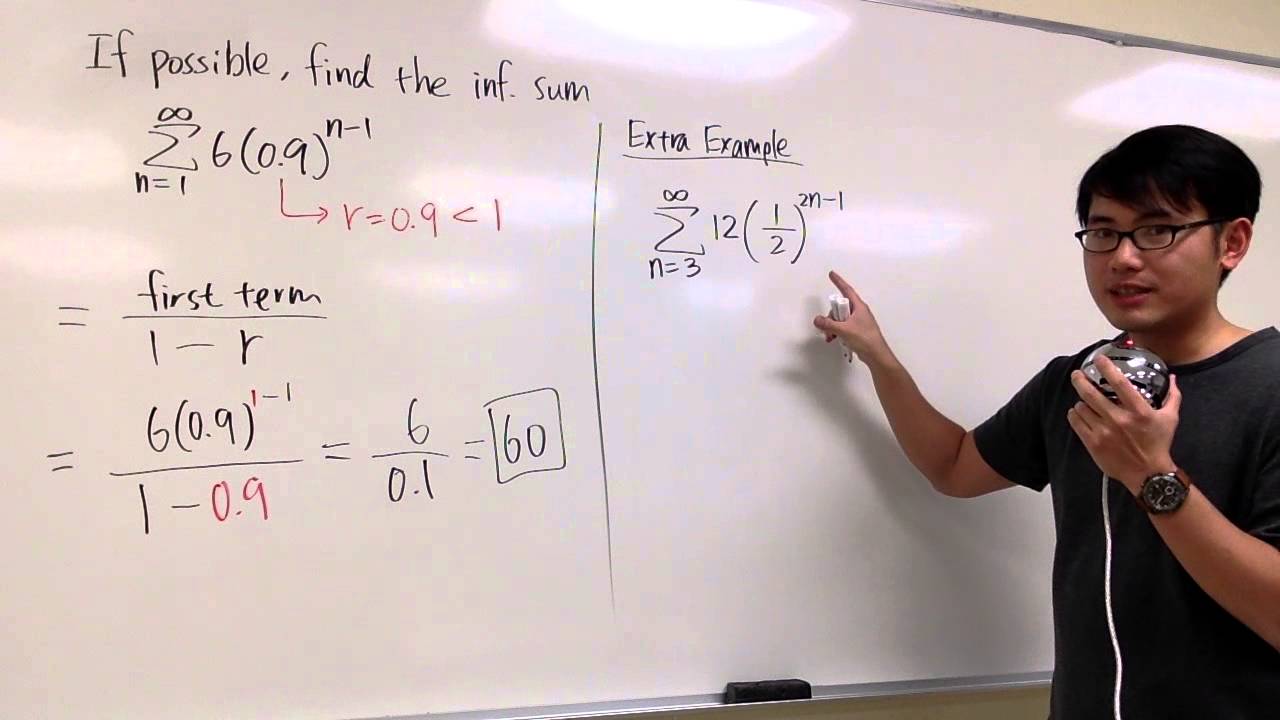 If possible, find the inf. sum
∞
Σ 6(0.9)^{n-1}
n=1
→ r=0.9 < 1
= first term
1 - r
= 6(0.9)^{1-1} = 6 = 60
1 - 0.9 0.1
Extra Example
∞
Σ 12(1/2)^{2n-1}
n=3